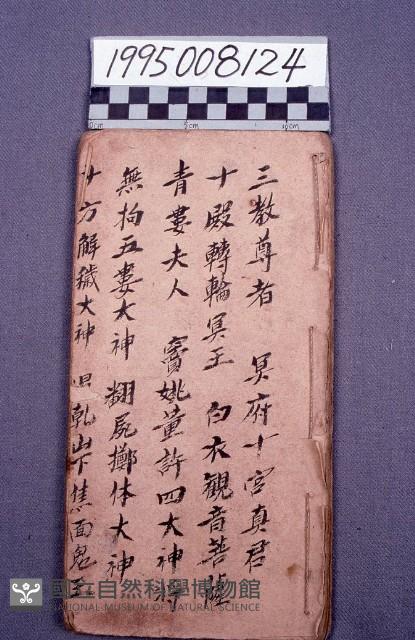 1995008124
0cm 5cm 10cm
三教尊者 冥府十宮真君
十殿轉輪冥王 白衣觀音菩薩
青婁夫人 竇姚董許四大神
無拘五婁大神 翻屍擲体大神
十方解穢大神 乾山下焦面鬼王
國立自然科學博物館
NATIONAL MUSEUM OF NATURAL SCIENCE